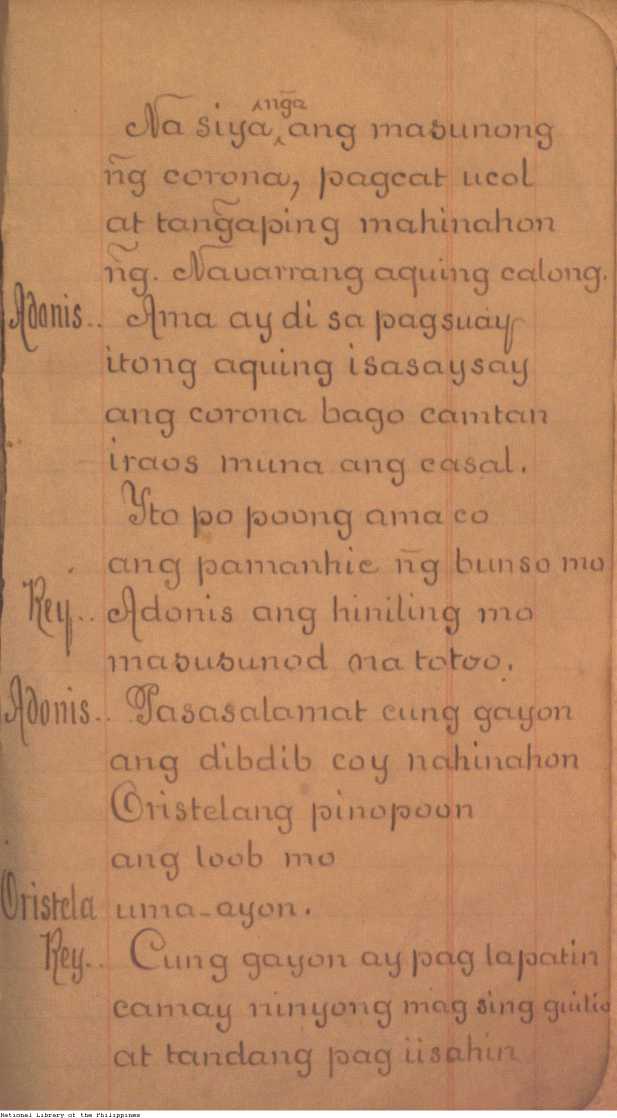 Na siya ng̃a ang masunong
ñg corona, pagcat ucol
at tang̃aping mahinahon
ñg. Navarrang aquing calong.
Adonis.. Ama ay di sa pagsuay
itong aquing isasaysay
ang corona bago camtan
iraos muna ang casal.
Yto po poong ama co
ang pamanhic ñg bunso mo
Rey.. Adonis ang hiniling mo
masusunod na totoo.
Adonis.. Pasasalamat cung gayon
ang dibdib coy nahinahon
Oristelang pinopoon
ang loob mo
Oristela uma-ayon.
Rey.. Cung gayon ay pag lapatin
camay ninyong mag sing guilio
at tandang pag iisahin
National Library of the Philippines